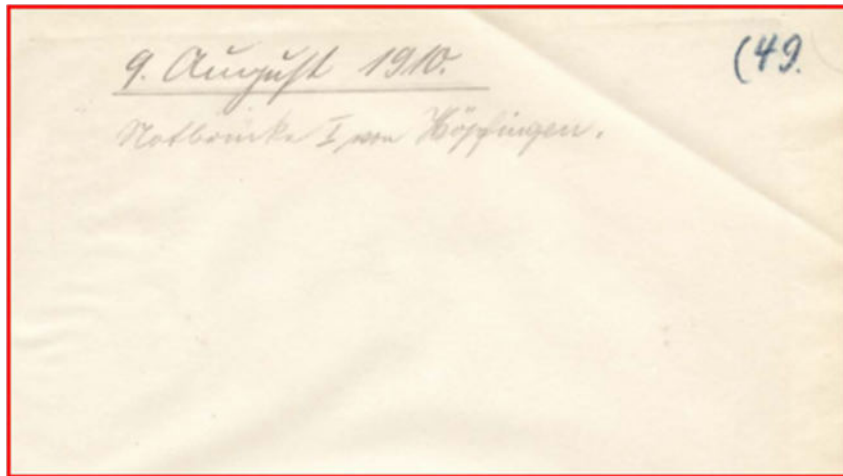 9. August 1910. (49.
Notbrücke I von Höpfingen.